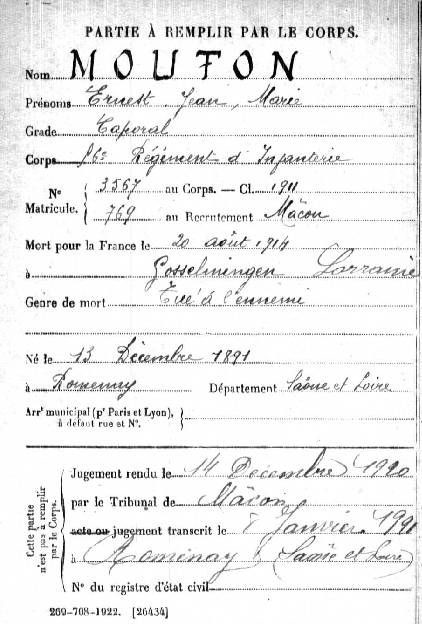 PARTIE À REMPLIR PAR LE CORPS.
Nom MOUTON
Prénoms Ernest Jean, Marie
Grade Caporal
Corps Régiment d'Infanterie
N° Matricule. { 3567 au Corps. — Cl. 1911
769 au Recrutement Mâcon
Mort pour la France le 20 août 1914
à Gosselmingen Lorraine
Genre de mort Tué à l'ennemi
Né le 13 Décembre 1891
à Romenay Département Saône et Loire
Arr' municipal (p' Paris et Lyon), à défaut rue et N°. }
Cette partie n'est pas à remplir par le Corps.
Jugement rendu le 14 Décembre 1920
par le Tribunal de Mâcon
acte ou jugement transcrit le Janvier 1921
à Romenay Saône et Loire
N° du registre d'état civil
269-708-1922. [26434]